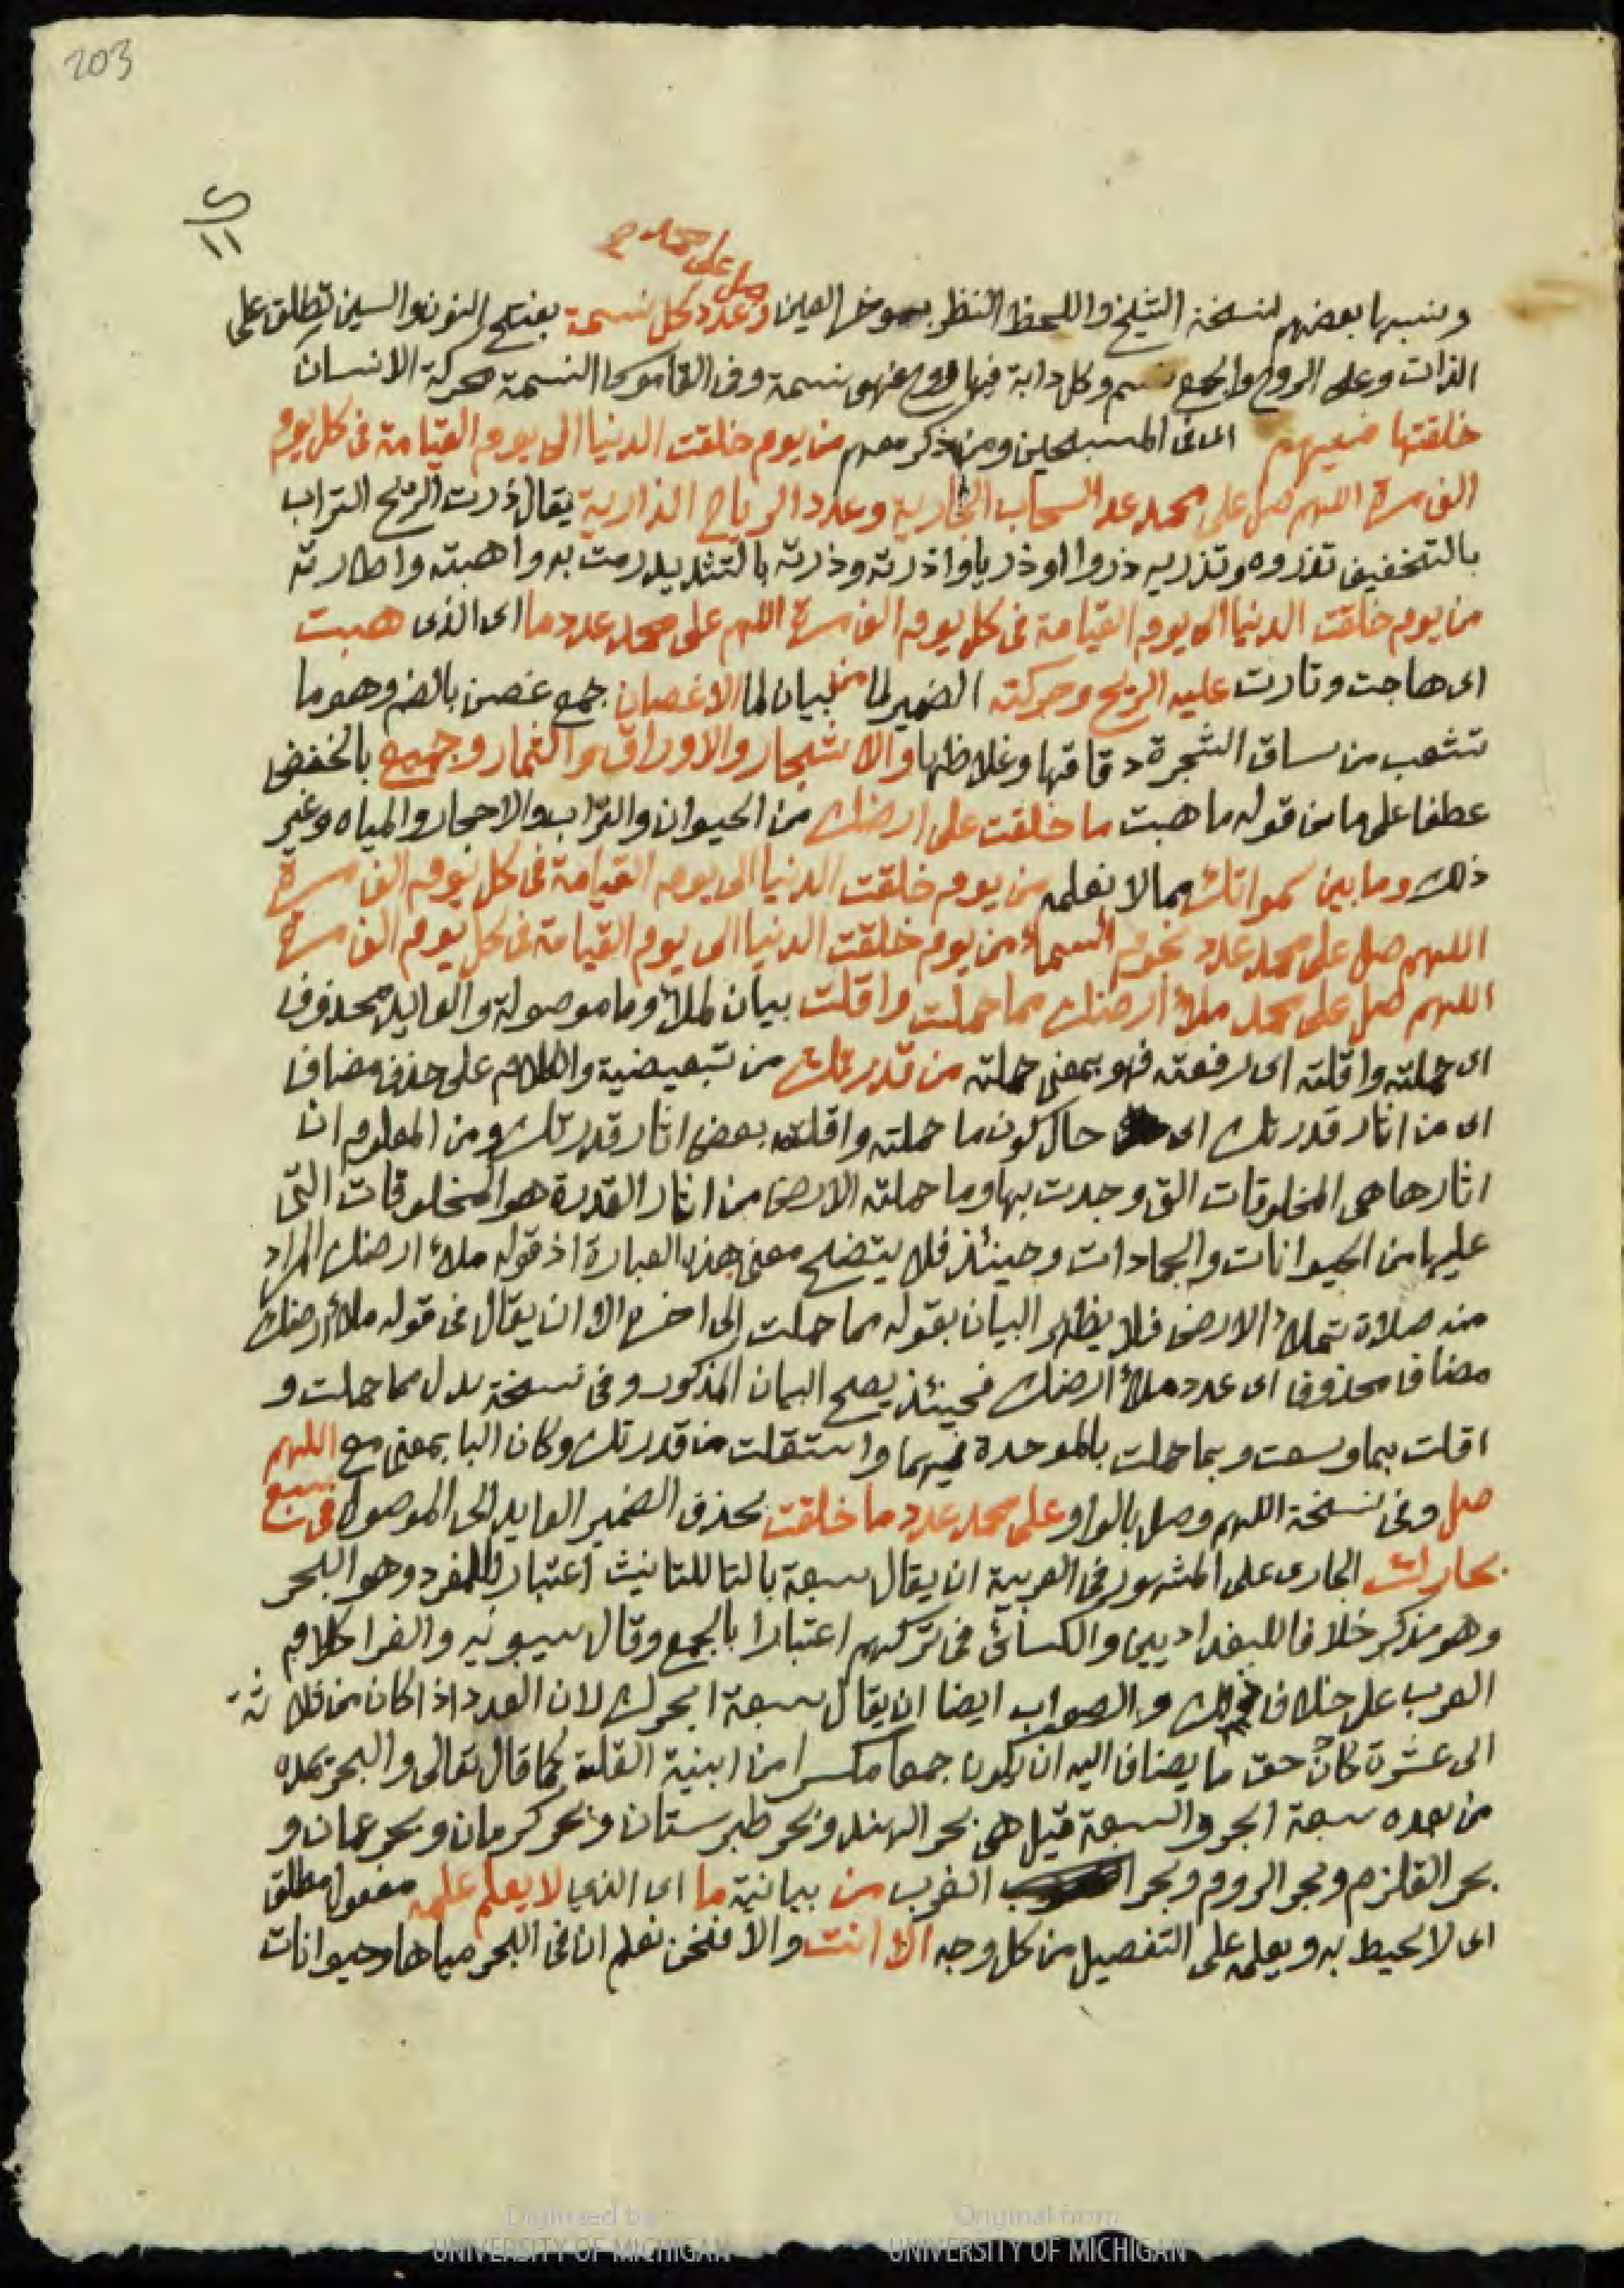 203
صل على محمد
وينسبها بعضهم لنسخة الشيخ واللحظ النظر بموخر العين وعدد كل نسمة بفتح النون والسين تطلق على
الذات وعلى الروح والجمع نسم وكل دابة فيها روح فهى نسمة وفى القاموس النسمة محركة الانسان
خلقتها فيهم اى فى المسبحين ومن ذكر معهم من يوم خلقت الدنيا الى يوم القيامة فى كل يوم
الف مرة اللهم صل على محمد عدد السحاب الجارية وعدد الرياح الذارية يقال ذرت الريح التراب
بالتخفيف تذروه وتذريه ذروا وذريا واذرته وذرته بالتشديد رمت به واهبته واطارته
من يوم خلقت الدنيا الى يوم القيامة فى كل يوم الف مرة اللهم على محمد عدد ما اى الذى هبت
اى هاجت وثارت عليه الريح وحركته الضمير لما من بيان لما الاغصان جمع غصن بالضم وهو ما
تشعب من ساق الشجرة دقاقها وغلاظها والاشجار والاوراق والثمار وجميع بالخفض
عطفا على ما من قوله ما هبت ما خلقت على ارضك من الحيوان والتراب والاحجار والمياه وغير
ذلك وما بين سمواتك مما لا نعلمه من يوم خلقت الدنيا الى يوم القيامة فى كل يوم الف مرة
اللهم صل على محمد عدد نجوم السماء من يوم خلقت الدنيا الى يوم القيامة فى كل يوم الف مرة
اللهم صل على محمد ملأ ارضك مما حملت واقلت بيان لملأ وما موصولة والعايد محذوف
اى حملته واقلته اى رفعته فهو بمعنى حملته من قدرتك من تبعيضية والكلام على حذف مضاف
اى من اثار قدرتك اى حال كون ما حملته واقلته بعض اثار قدرتك ومن المعلوم ان
اثارها هى المخلوقات التى وجدت بها وما حملته الارض من اثار القدرة هو المخلوقات التى
عليها من الحيوانات والجمادات وحينئذ فلا يتضح معنى هذه العبارة اذ قوله ملأ ارضك المراد
منه صلاة تملأ الارض فلا يظهر البيان بقوله مما حملت الى اخره الا ان يقال فى قوله ملأ ارضك
مضاف محذوف اى عدد ملأ ارضك فحينئذ يصح البيان المذكور وفى نسخة بدل مما حملت و
اقلت بما وسعت وبما حملت بالموحدة فيهما واستقلت من قدرتك وكان البا بمعنى مع اللهم
صل وفى نسخة اللهم وصل بالواو على محمد عدد ما خلقت بحذف الضمير العايد الى الموصول فى سبع
بحارك الجارى على المشهور فى العربية ان يقال سبعة بالتا للتانيث اعتبارا للمفرد وهو البحر
وهو مذكر خلافا للبغداديين والكسائى فى تركهم اعتبارا بالجمع وقال سيبويه والفرا كلام
العرب على خلاف ذلك والصواب ايضا ان يقال سبعة ابحرك لان العدد اذا كان من ثلاثة
الى عشرة كان حق ما يضاف اليه ان يكون جمعا مكسرا من ابنية القلة كما قال تعالى والبحر يمده
من بعده سبعة ابحر والسبعة قيل هى بحر الهند وبحر طبرستان وبحر كرمان وبحر عمان و
بحر القلزم وبحر الروم وبحر الغرب من بيانية ما اى الذي لا يعلم علمه مفعول مطلق
اى لا يحيط به ويعلمه على التفصيل من كل وجه الا انت والا فنحن نعلم ان فى البحر مياها وحيوانات
Digitized by
UNIVERSITY OF MICHIGAN
Original from
UNIVERSITY OF MICHIGAN